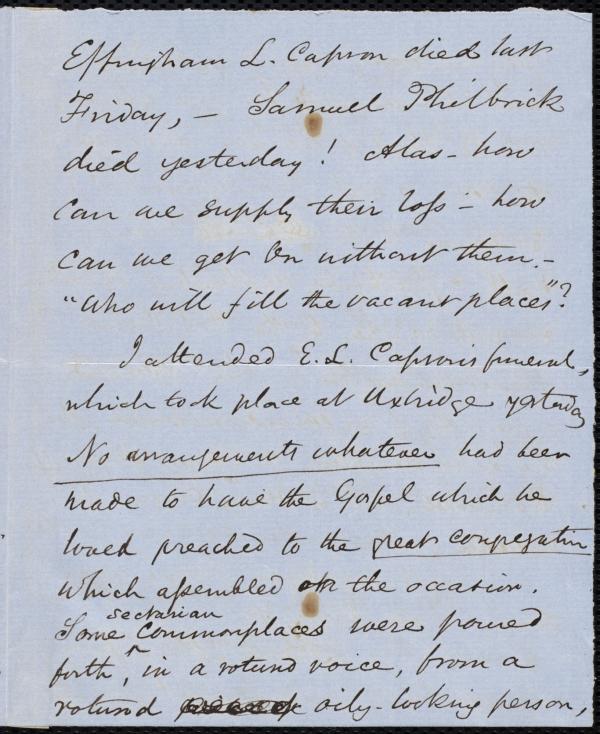 Effingham L. Capron died last
Friday, – Samuel Philbrick
died yesterday! Alas – how
can we supply their loss – how
can we get on without them. –
"Who will fill the vacant places"?
I attended E. L. Capron's funeral,
which took place at Uxbridge yesterday
No arrangements whatever had been
made to have the Gospel which he
loved preached to the great congregation
which assembled on the occasion.
sectarian
Some ^ commonplaces were poured
forth, in a rotund voice, from a
rotund oily-looking person,